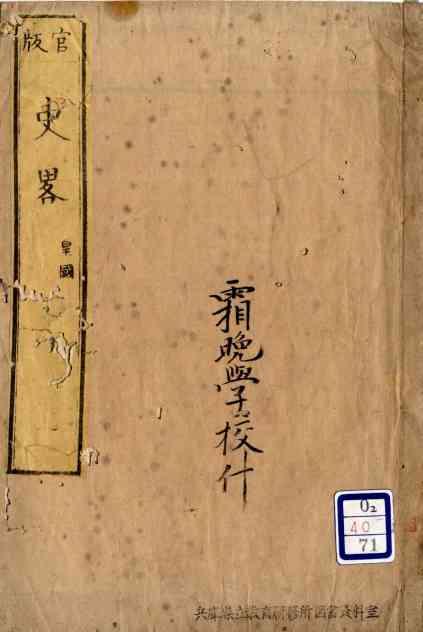 官版
史畧
皇國
霜晩學校什
O2
40
71
兵庫県立教育研修所図書資料室